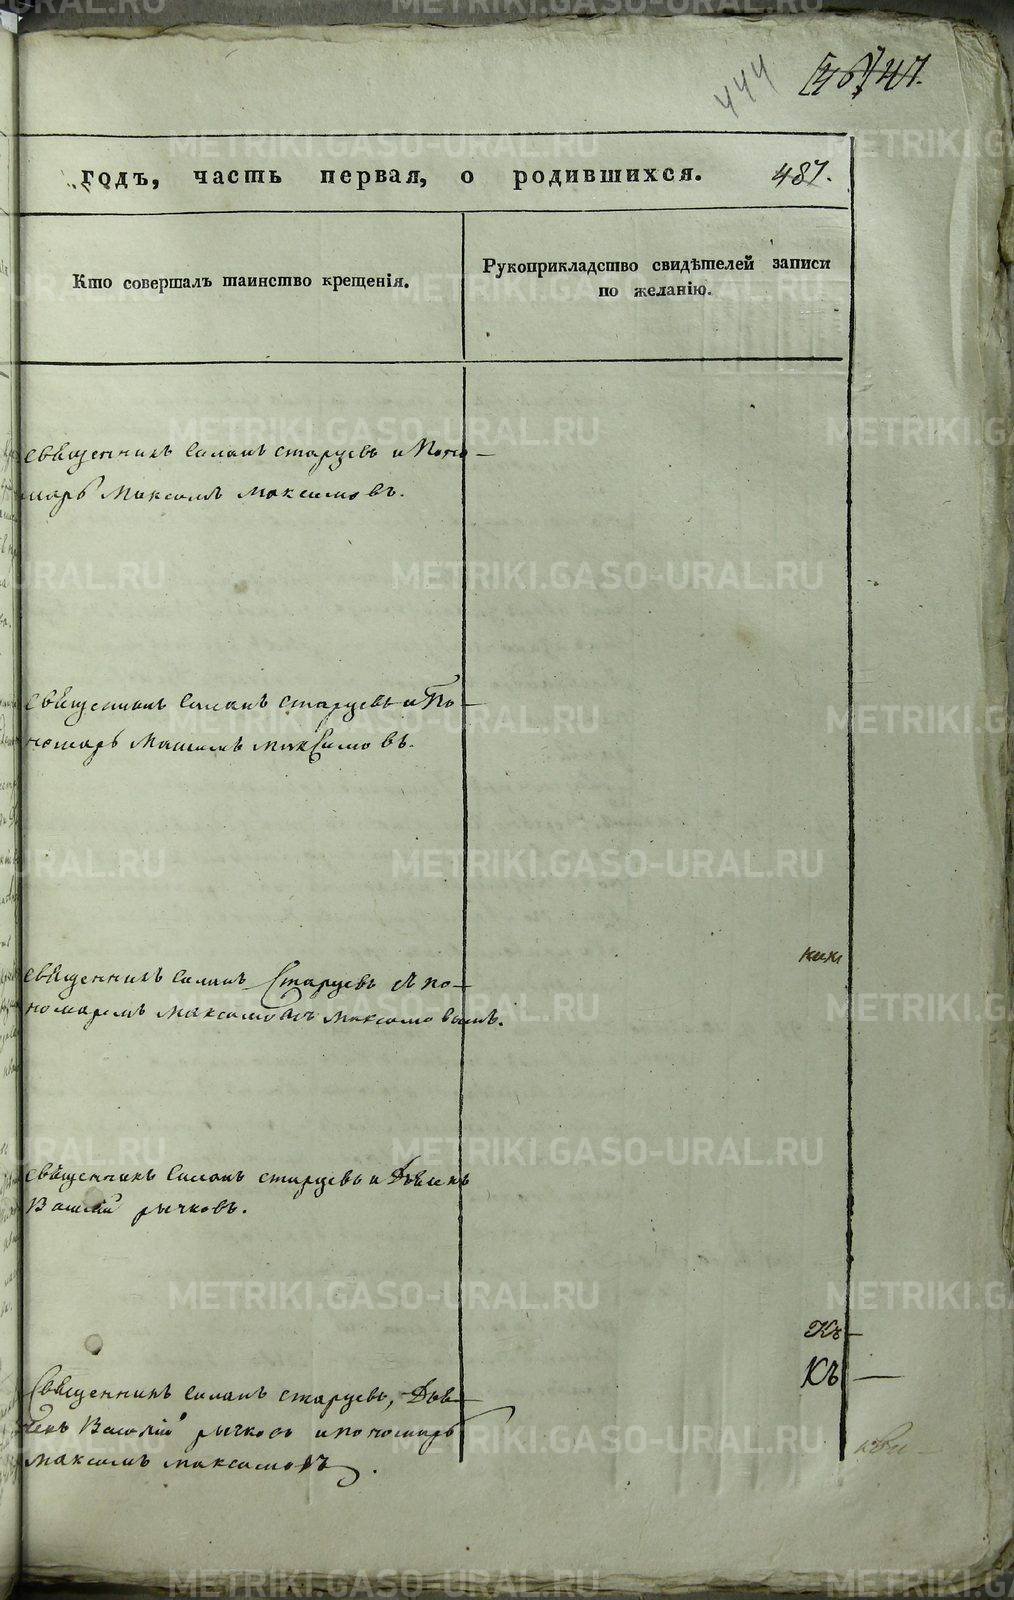 444
47.
годъ, часть первая, о родившихся. 487.
Кто совершалъ таинство крещенія.
Рукоприкладство свидѣтелей записи
по желанію.
священникъ Симонъ старцевъ и Поно-
марь Максимъ максимовъ.
священникъ Симонъ старцевъ и По-
номарь Максимъ максимовъ.
священникъ Симонъ Старцевъ съ по-
номаремъ Максимомъ максимовымъ.
священникъ Симонъ старцевъ и Дьячекъ
Василій рычковъ.
Священникъ симонъ старцевъ, Дья-
чекъ Василій рычковъ и пономарь
максимъ максимовъ.
Къ
METRIKI.GASO-URAL.RU